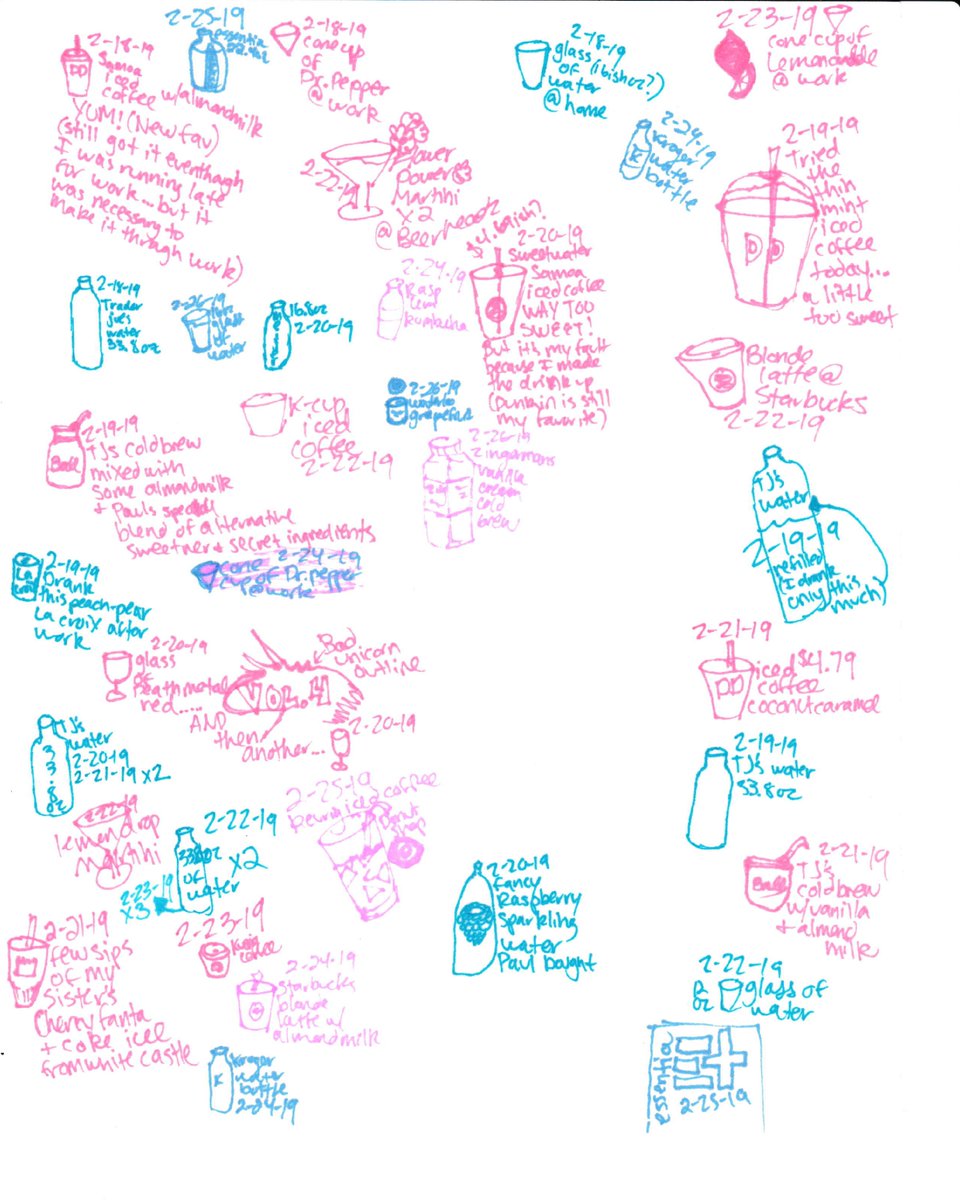 2-18-19
Samoa
iced
coffee w/almondmilk
YUM! (New fav)
(still got it eventhough
I was running late
for work... but it
was necessary to
make it through work)
DD
2-25-19
essentia
2-18-19
cone cup
of
Dr. Pepper
@ work
2-18-19
glass (16ish oz?)
of
water
@ home
2-23-19
cone cup of
Lemonade
@ work
2-22-19
flower
Power
Martini
x2
@ Beerheadz
2-24-19
Kroger
water
bottle
K
2-19-19
Tried
the
thin
mint
iced
coffee
today...
a little
too sweet
DD
2-18-19
Trader
Joe's
water
33.8oz
2-26-19
16oz
glass
of
water
16.8oz
2-20-19
2-24-19
Rasp
kumbacha
$4.
2-20-19
sweetwater
Samoa
iced coffee
WAY TOO
SWEET!
But it's my fault
because I made
the drink up
(Dunkin is still
my favorite)
Blonde
latte @
Starbucks
2-22-19
2-19-19
TJs coldbrew
mixed with
some almondmilk
+ Pauls special
blend of alternative
sweetner + secret ingredients
Ball
K-cup
iced
coffee
2-22-19
2-26-19
waterloo
grapefruit
2-26-19
Zingermans
vanilla
cream
cold
brew
TJ's
water
2-19-19
refilled
(I drank
only this
much)
2-19-19
Drank
this peach-pear
La croix after
work
La
Croix
cone 2-24-19
cup of Dr. pepper
@ work
2-20-19
glass
of
Deathmetal
red.....
AND
then
another...
2-20-19
VOL.4
Bad
unicorn
outline
2-21-19
iced $4.79
coffee
coconut caramel
DD
TJ's
water
2-20-19
2-21-19 x2
33.8oz
2-19-19
TJ's water
33.8oz
2-22-19
lemondrop
Martini
2-22-19
33.8oz
of
water
x2
2-23-19
x3
2-25-19
iced coffee
Donut
2-20-19
fancy
Raspberry
sparkling
water
Paul bought
2-21-19
TJ's
coldbrew
w/vanilla
+ almond
milk
Ball
2-21-19
few sips
of my
sister's
Cherry fanta
+ coke icee
from white castle
2-23-19
coffee
2-24-19
Starbucks
blonde
latte w/
almondmilk
2-22-19
12
oz
glass of
water
Kroger
water
bottle
2-24-19
K
essentia
2-25-19